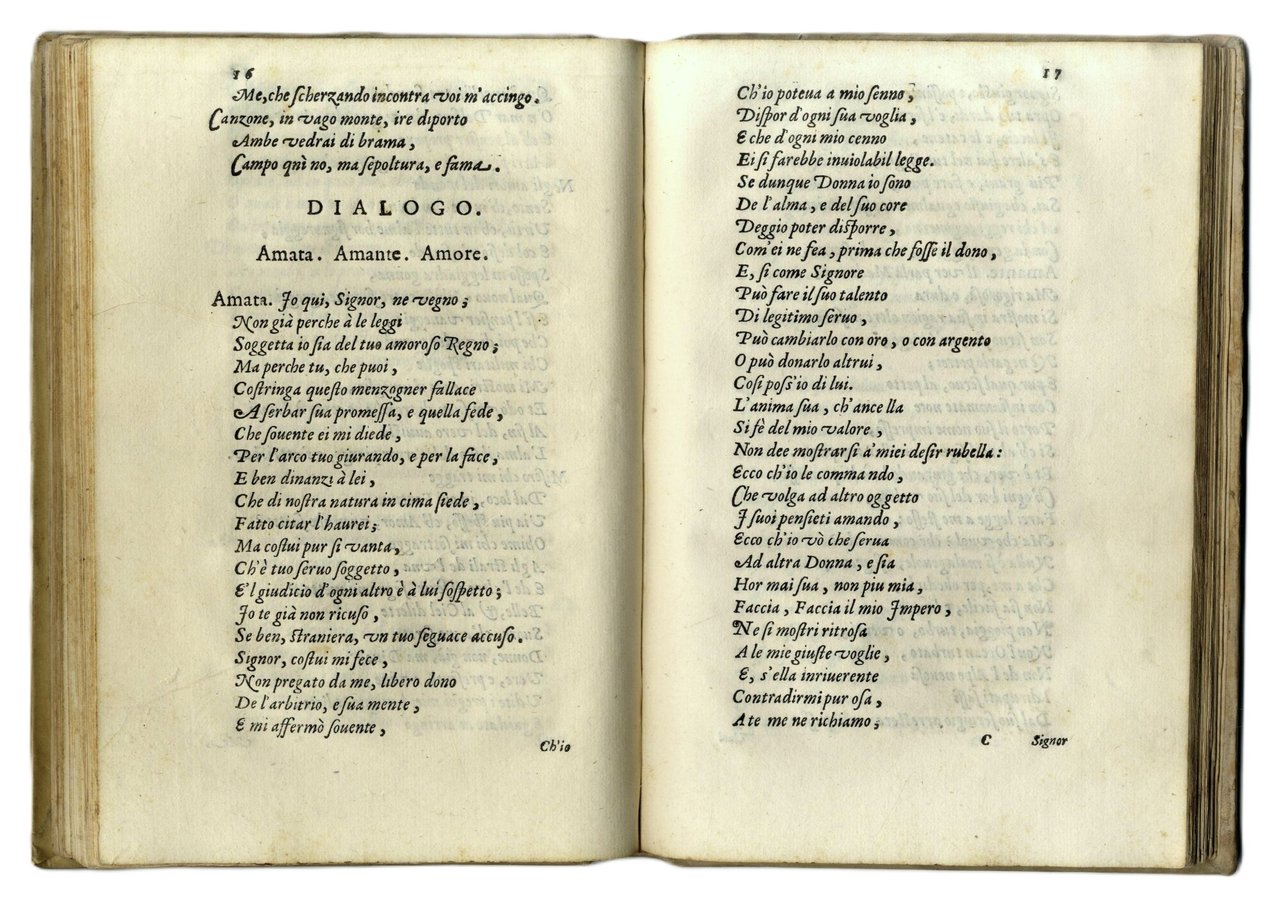 16
Me, che scherzando incontra voi m'accingo.
Canzone, in vago monte, ire diporto
Ambe vedrai di brama,
Campo qnì no, ma sepoltura, e fama.
DIALOGO.
Amata. Amante. Amore.
Amata. Io qui, Signor, ne vegno;
Non già perche à le leggi
Soggetta io sia del tuo amoroso Regno;
Ma perche tu, che puoi,
Costringa questo menzogner fallace
A serbar sua promessa, e quella fede,
Che souente ei mi diede,
Per l'arco tuo giurando, e per la face,
E ben dinanzi à lei,
Che di nostra natura in cima siede,
Fatto citar l'haurei;
Ma costui pur si vanta,
Ch'è tuo seruo soggetto,
E'l giudicio d'ogni altro è à lui sospetto;
Io te già non ricuso,
Se ben, straniera, vn tuo seguace accuso.
Signor, costui mi fece,
Non pregato da me, libero dono
De l'arbitrio, e sua mente,
E mi affermò souente,
Ch'io
17
Ch'io poteua a mio senno,
Dispor d'ogni sua voglia,
E che d'ogni mio cenno
Ei si farebbe inuiolabil legge.
Se dunque Donna io sono
De l'alma, e del suo core
Deggio poter disporre,
Com'ei ne fea, prima che fosse il dono,
E, si come Signore
Può fare il suo talento
Di legitimo seruo,
Può cambiarlo con oro, o con argento
O può donarlo altrui,
Così poss'io di lui.
L'anima sua, ch'ancella
Si fè del mio valore,
Non dee mostrarsi a' miei desir rubella:
Ecco ch'io le comma ndo,
Che volga ad altro oggetto
I suoi pensieti amando,
Ecco ch'io vò che serua
Ad altra Donna, e sia
Hor mai sua, non piu mia,
Faccia, Faccia il mio Impero,
Ne si mostri ritrosa
A le mie giuste voglie,
E, s'ella inriuerente
Contradirmi pur osa,
A te me ne richiamo;
C Signor